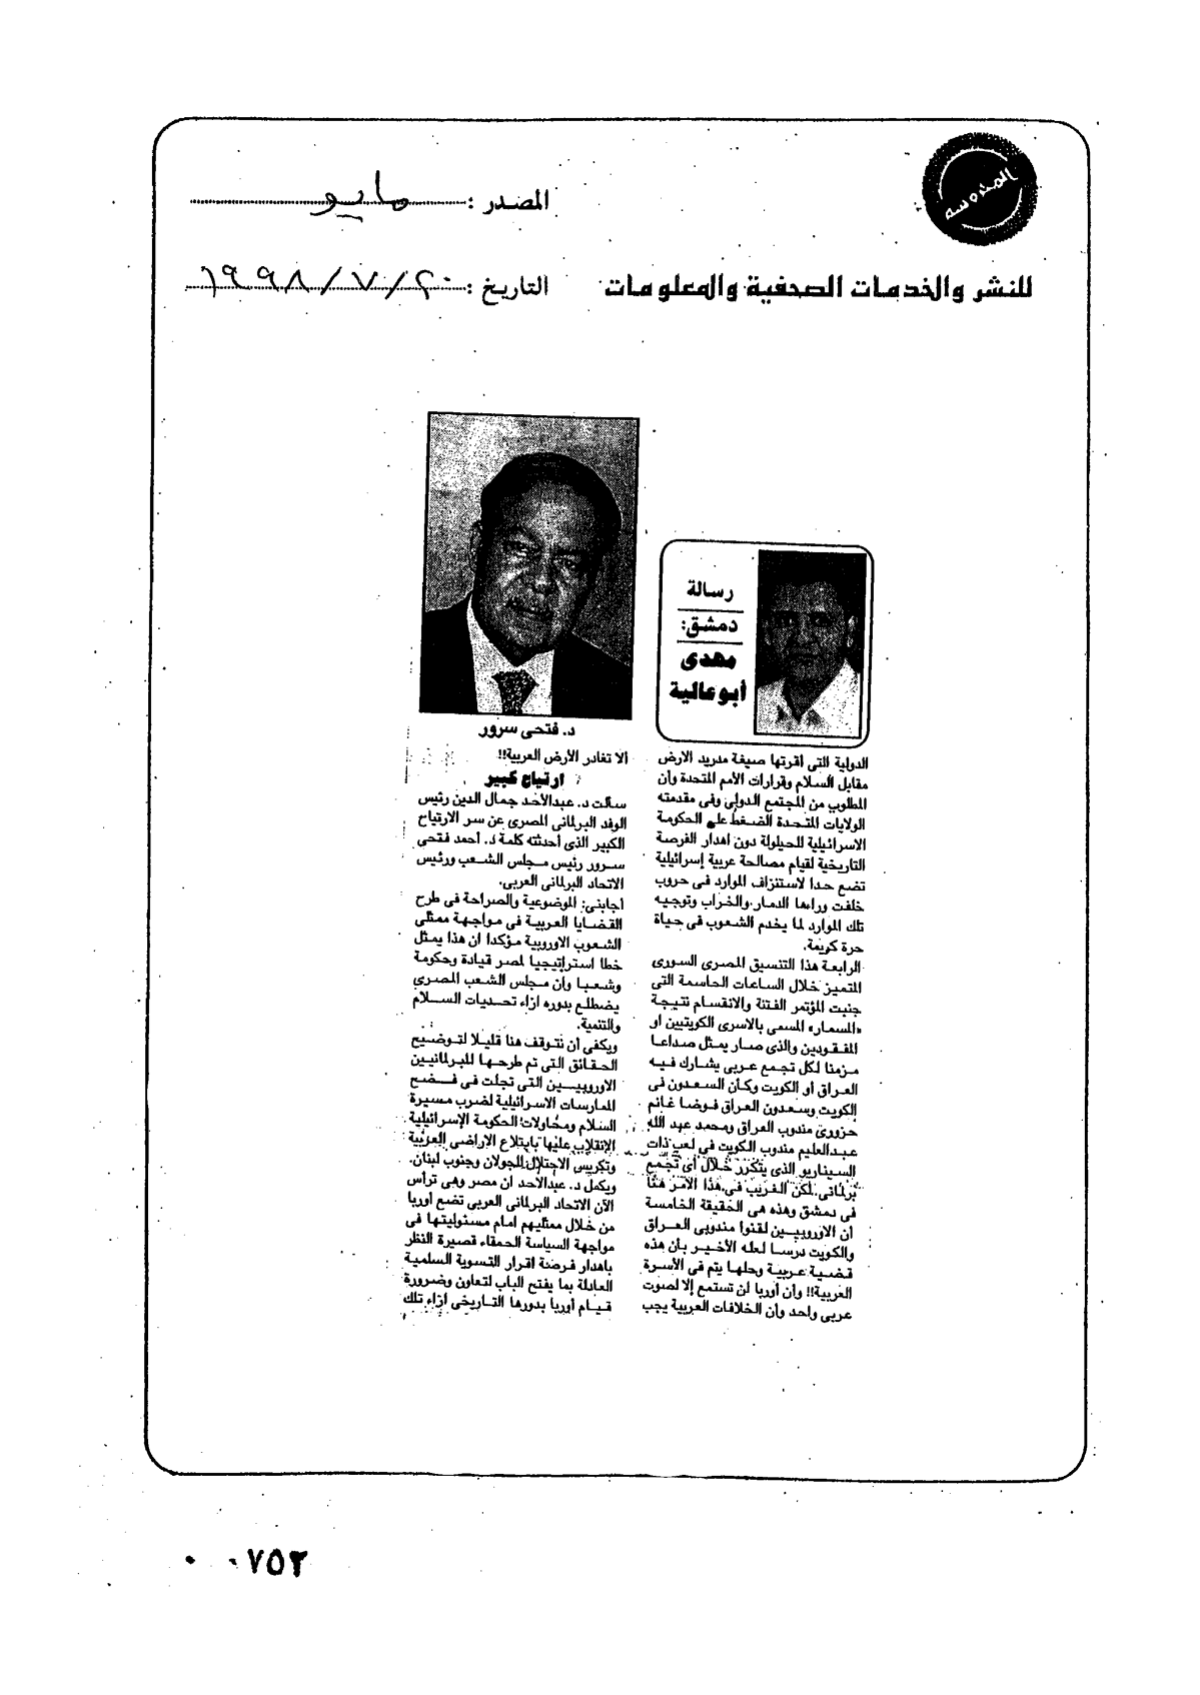 المصدر : مايو
المحروسة
للنشر والخدمات الصحفية والمعلومات
التاريخ : ٢٠/٧/١٩٩٨
رسالة
دمشق:
مهدى
أبو عالية
الدولية التى اقرتها صيغة مدريد الارض
مقابل السلام وقرارات الأمم المتحدة وأن
المطلوب من المجتمع الدولى وفى مقدمته
الولايات المتحدة الضغط على الحكومة
الاسرائيلية للحيلولة دون اهدار الفرصة
التاريخية لقيام مصالحة عربية إسرائيلية
تضع حدا لاستنزاف الموارد فى حروب
خلفت وراءها الدمار والخراب وتوجيه
تلك الموارد لما يخدم الشعوب فى حياة
حرة كريمة.
الرابعة هذا التنسيق المصرى السورى
المتميز خلال الساعات الحاسمة التى
جنبت المؤتمر الفتنة والانقسام نتيجة
«المسمار» المسمى بالاسرى الكويتيين او
المفقودين والذى صار يمثل صداعا
مزمنا لكل تجمع عربى يشارك فيه
العراق أو الكويت وكأن السعدون فى
الكويت وسعدون العراق فوضا غانم
حزورى مندوب العراق ومحمد عبد الله
عبدالعليم مندوب الكويت فى لعب ذات
السيناريو الذى يتكرر خلال أى تجمع
برلمانى.لكن الغريب فى هذا الأمر هنا
فى دمشق وهذه هى الحقيقة الخامسة
أن الاوروبيين لقنوا مندوبى العراق
والكويت درسا لعله الأخير بأن هذه
قضية عربية وحلها يتم فى الأسرة
العربية!! وأن أوربا لن تستمع إلا لصوت
عربى واحد وأن الخلافات العربية يجب
د. فتحى سرور
الا تغادر الأرض العربية!!
ارتياح كبير
سألت د. عبدالأحد جمال الدين رئيس
الوفد البرلمانى المصرى عن سر الارتياح
الكبير الذى أحدثته كلمة د. أحمد فتحى
سرور رئيس مجلس الشعب ورئيس
الاتحاد البرلمانى العربى.
أجابنى: الموضوعية والصراحة فى طرح
القضايا العربية فى مواجهة ممثلى
الشعوب الاوروبية مؤكدا ان هذا يمثل
خطا استراتيجيا لمصر قيادة وحكومة
وشعبا وأن مجلس الشعب المصرى
يضطلع بدوره ازاء تحديات السلام
والتنمية.
ويكفى أن نتوقف هنا قليلا لتوضيح
الحقائق التى تم طرحها للبرلمانيين
الاوروبيين التى تجلت فى فضح
الممارسات الاسرائيلية لضرب مسيرة
السلام ومحاولات الحكومة الإسرائيلية
الإنقلاب عليها بابتلاع الاراضى العربية
وتكريس الاحتلال للجولان وجنوب لبنان.
ويكمل د. عبدالاحد ان مصر وهى ترأس
الآن الاتحاد البرلمانى العربى تضع أوربا
من خلال ممثليهم امام مسئوليتها فى
مواجهة السياسة الحمقاء قصيرة النظر
باهدار فرصة اقرار التسوية السلمية
العادلة بما يفتح الباب لتعاون وضرورة
قيام أوربا بدورها التاريخى ازاء تلك
٠٠٧٥٢